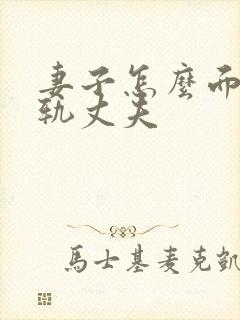 妻子怎麼而
軌丈夫
馬士基麦克凱